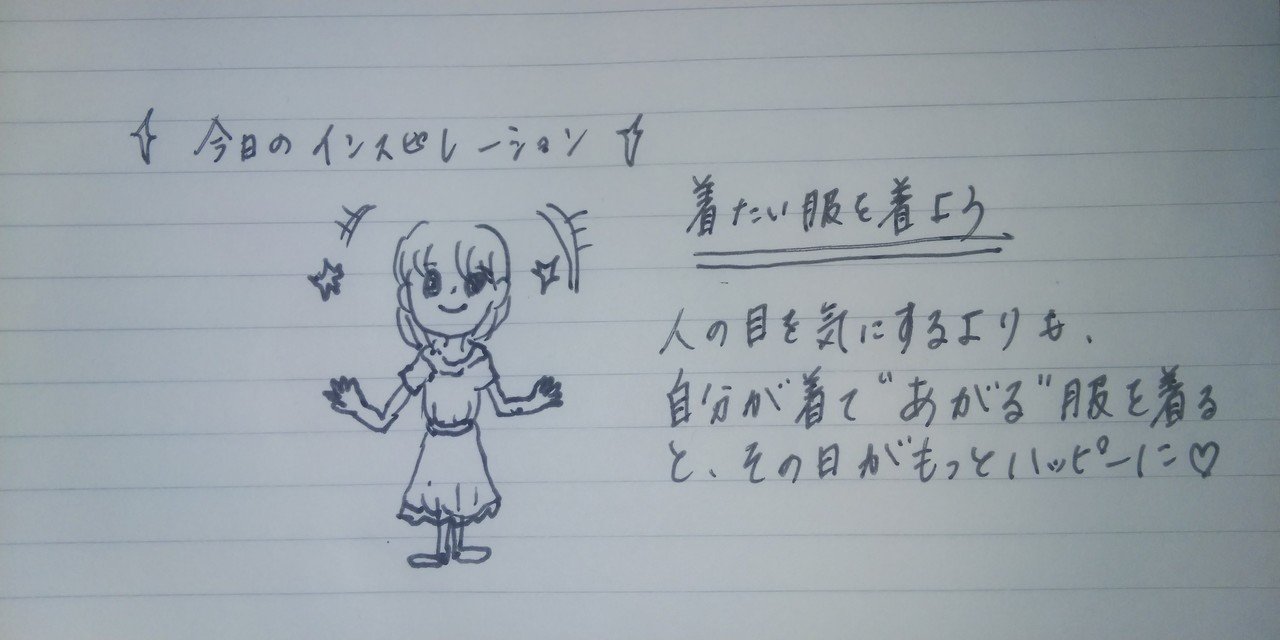 今日のインスピレーション
着たい服を着よう
人の目を気にするよりも、
自分が着て"あがる"服を着る
と、その日がもっとハッピーに♡